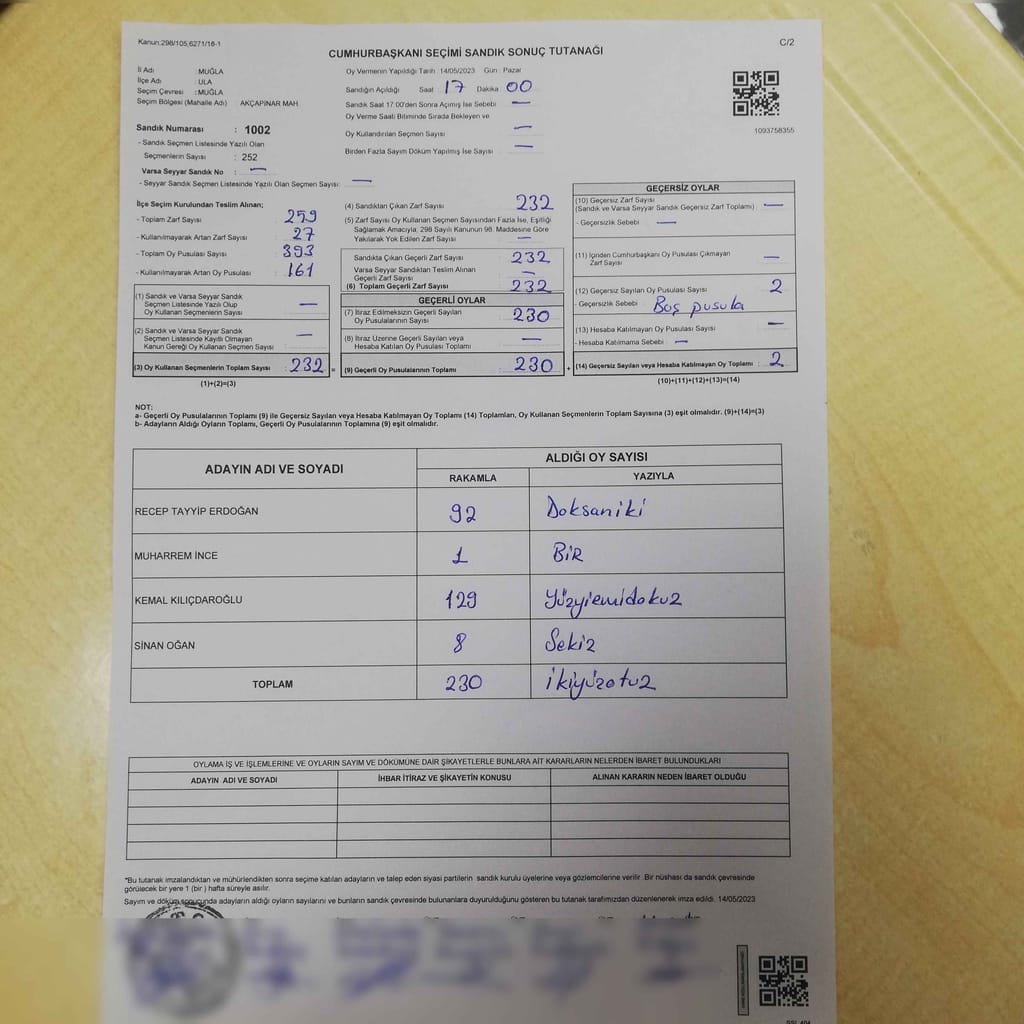 Kanun:298/105,6271/16-1
C/2
CUMHURBAŞKANI SEÇİMİ SANDIK SONUÇ TUTANAĞI
İl Adı : MUĞLA
İlçe Adı : ULA
Seçim Çevresi : MUĞLA
Seçim Bölgesi (Mahalle Adı) AKÇAPINAR MAH
Sandık Numarası : 1002
- Sandık Seçmen Listesinde Yazılı Olan
Seçmenlerin Sayısı : 252
Varsa Seyyar Sandık No : —
- Seyyar Sandık Seçmen Listesinde Yazılı Olan Seçmen Sayısı: —
Oy Vermenin Yapıldığı Tarih :14/05/2023 Gün : Pazar
Sandığın Açıldığı Saat 17 Dakika 00
Sandık Saat 17:00'den Sonra Açımış İse Sebebi —
Oy Verme Saati Bitiminde Sırada Bekleyen ve
Oy Kullandırılan Seçmen Sayısı —
Birden Fazla Sayım Döküm Yapılmış İse Sayısı —
1093758355
İlçe Seçim Kurulundan Teslim Alınan;
- Toplam Zarf Sayısı : 259
- Kullanılmayarak Artan Zarf Sayısı : 27
- Toplam Oy Pusulası Sayısı : 393
- Kullanılmayarak Artan Oy Pusulası : 161
(1) Sandık ve Varsa Seyyar Sandık
Seçmen Listesinde Yazılı Olup
Oy Kullanan Seçmenlerin Sayısı : —
(2) Sandık ve Varsa Seyyar Sandık
Seçmen Listesinde Kayıtlı Olmayan
Kanun Gereği Oy Kullanan Seçmen Sayısı : —
(3) Oy Kullanan Seçmenlerin Toplam Sayısı : 232
(1)+(2)=(3)
(4) Sandıktan Çıkan Zarf Sayısı 232
(5) Zarf Sayısı Oy Kullanan Seçmen Sayısından Fazla İse, Eşitliği
Sağlamak Amacıyla, 298 Sayılı Kanunun 98. Maddesine Göre
Yakılarak Yok Edilen Zarf Sayısı —
Sandıkta Çıkan Geçerli Zarf Sayısı 232
Varsa Seyyar Sandıktan Teslim Alınan
Geçerli Zarf Sayısı —
(6) Toplam Geçerli Zarf Sayısı 232
GEÇERLİ OYLAR
(7) İtiraz Edilmeksizin Geçerli Sayılan
Oy Pusulalarının Sayısı 230
(8) İtiraz Üzerine Geçerli Sayılan veya
Hesaba Katılan Oy Pusulası Toplamı —
= (9) Geçerli Oy Pusulalarının Toplamı 230 +
GEÇERSİZ OYLAR
(10) Geçersiz Zarf Sayısı
(Sandık ve Varsa Seyyar Sandık Geçersiz Zarf Toplamı) : —
- Geçersizlik Sebebi : —
(11) İçinden Cumhurbaşkanı Oy Pusulası Çıkmayan
Zarf Sayısı —
(12) Geçersiz Sayılan Oy Pusulası Sayısı : 2
- Geçersizlik Sebebi : Boş pusula
(13) Hesaba Katılmayan Oy Pusulası Sayısı : —
- Hesaba Katılmama Sebebi : —
(14) Geçersiz Sayılan veya Hesaba Katılmayan Oy Toplamı : 2
(10)+(11)+(12)+(13)=(14)
NOT:
a- Geçerli Oy Pusulalarının Toplamı (9) ile Geçersiz Sayılan veya Hesaba Katılmayan Oy Toplamı (14) Toplamları, Oy Kullanan Seçmenlerin Toplam Sayısına (3) eşit olmalıdır. (9)+(14)=(3)
b- Adayların Aldığı Oyların Toplamı, Geçerli Oy Pusulalarının Toplamına (9) eşit olmalıdır.
ADAYIN ADI VE SOYADI
ALDIĞI OY SAYISI
RAKAMLA YAZIYLA
RECEP TAYYİP ERDOĞAN 92 Doksaniki
MUHARREM İNCE 1 BİR
KEMAL KILIÇDAROĞLU 129 Yüzyiemidokuz
SİNAN OĞAN 8 Sekiz
TOPLAM 230 ikiyüzotuz
OYLAMA İŞ VE İŞLEMLERİNE VE OYLARIN SAYIM VE DÖKÜMÜNE DAİR ŞİKAYETLERLE BUNLARA AİT KARARLARIN NELERDEN İBARET BULUNDUKLARI
ADAYIN ADI VE SOYADI İHBAR İTİRAZ VE ŞİKAYETİN KONUSU ALINAN KARARIN NEDEN İBARET OLDUĞU
*Bu tutanak imzalandıktan ve mühürlendikten sonra seçime katılan adayların ve talep eden siyasi partilerin sandık kurulu üyelerine veya gözlemcilerine verilir .Bir nüshası da sandık çevresinde
görülecek bir yere 1 (bir ) hafta süreyle asılır.
Sayım ve döküm sonucunda adayların aldığı oyların sayılarını ve bunların sandık çevresinde bulunanlara duyurulduğunu gösteren bu tutanak tarafımızdan düzenlenerek imza edildi. 14/05/2023